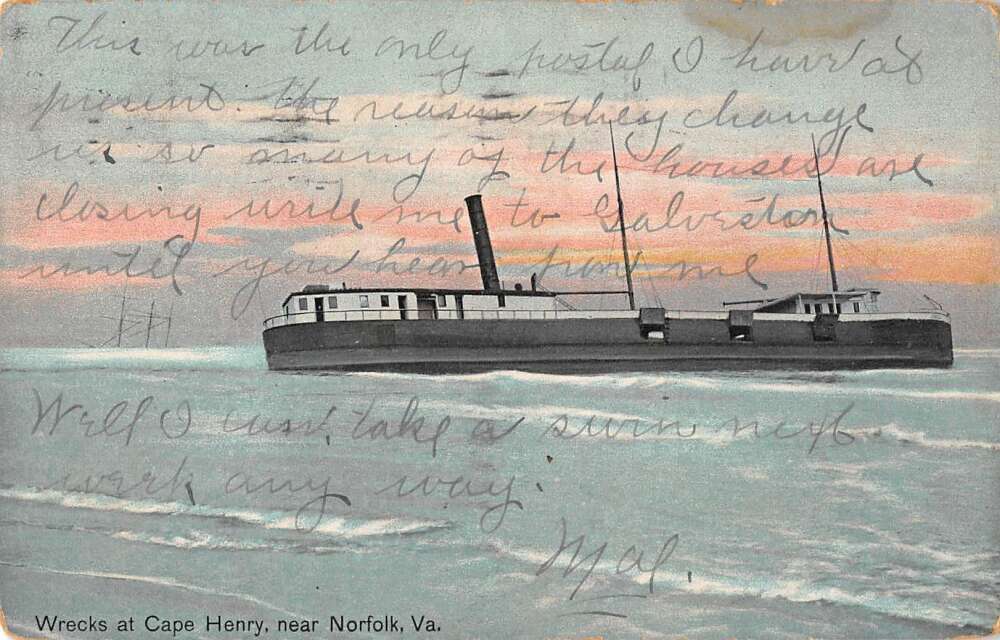 This was the only postal I have at
present. The reason they change
us so many of the houses are
closing write me to Galveston
until you hear from me
Well I can take a swim next
week any way.
Mal.
Wrecks at Cape Henry, near Norfolk, Va.